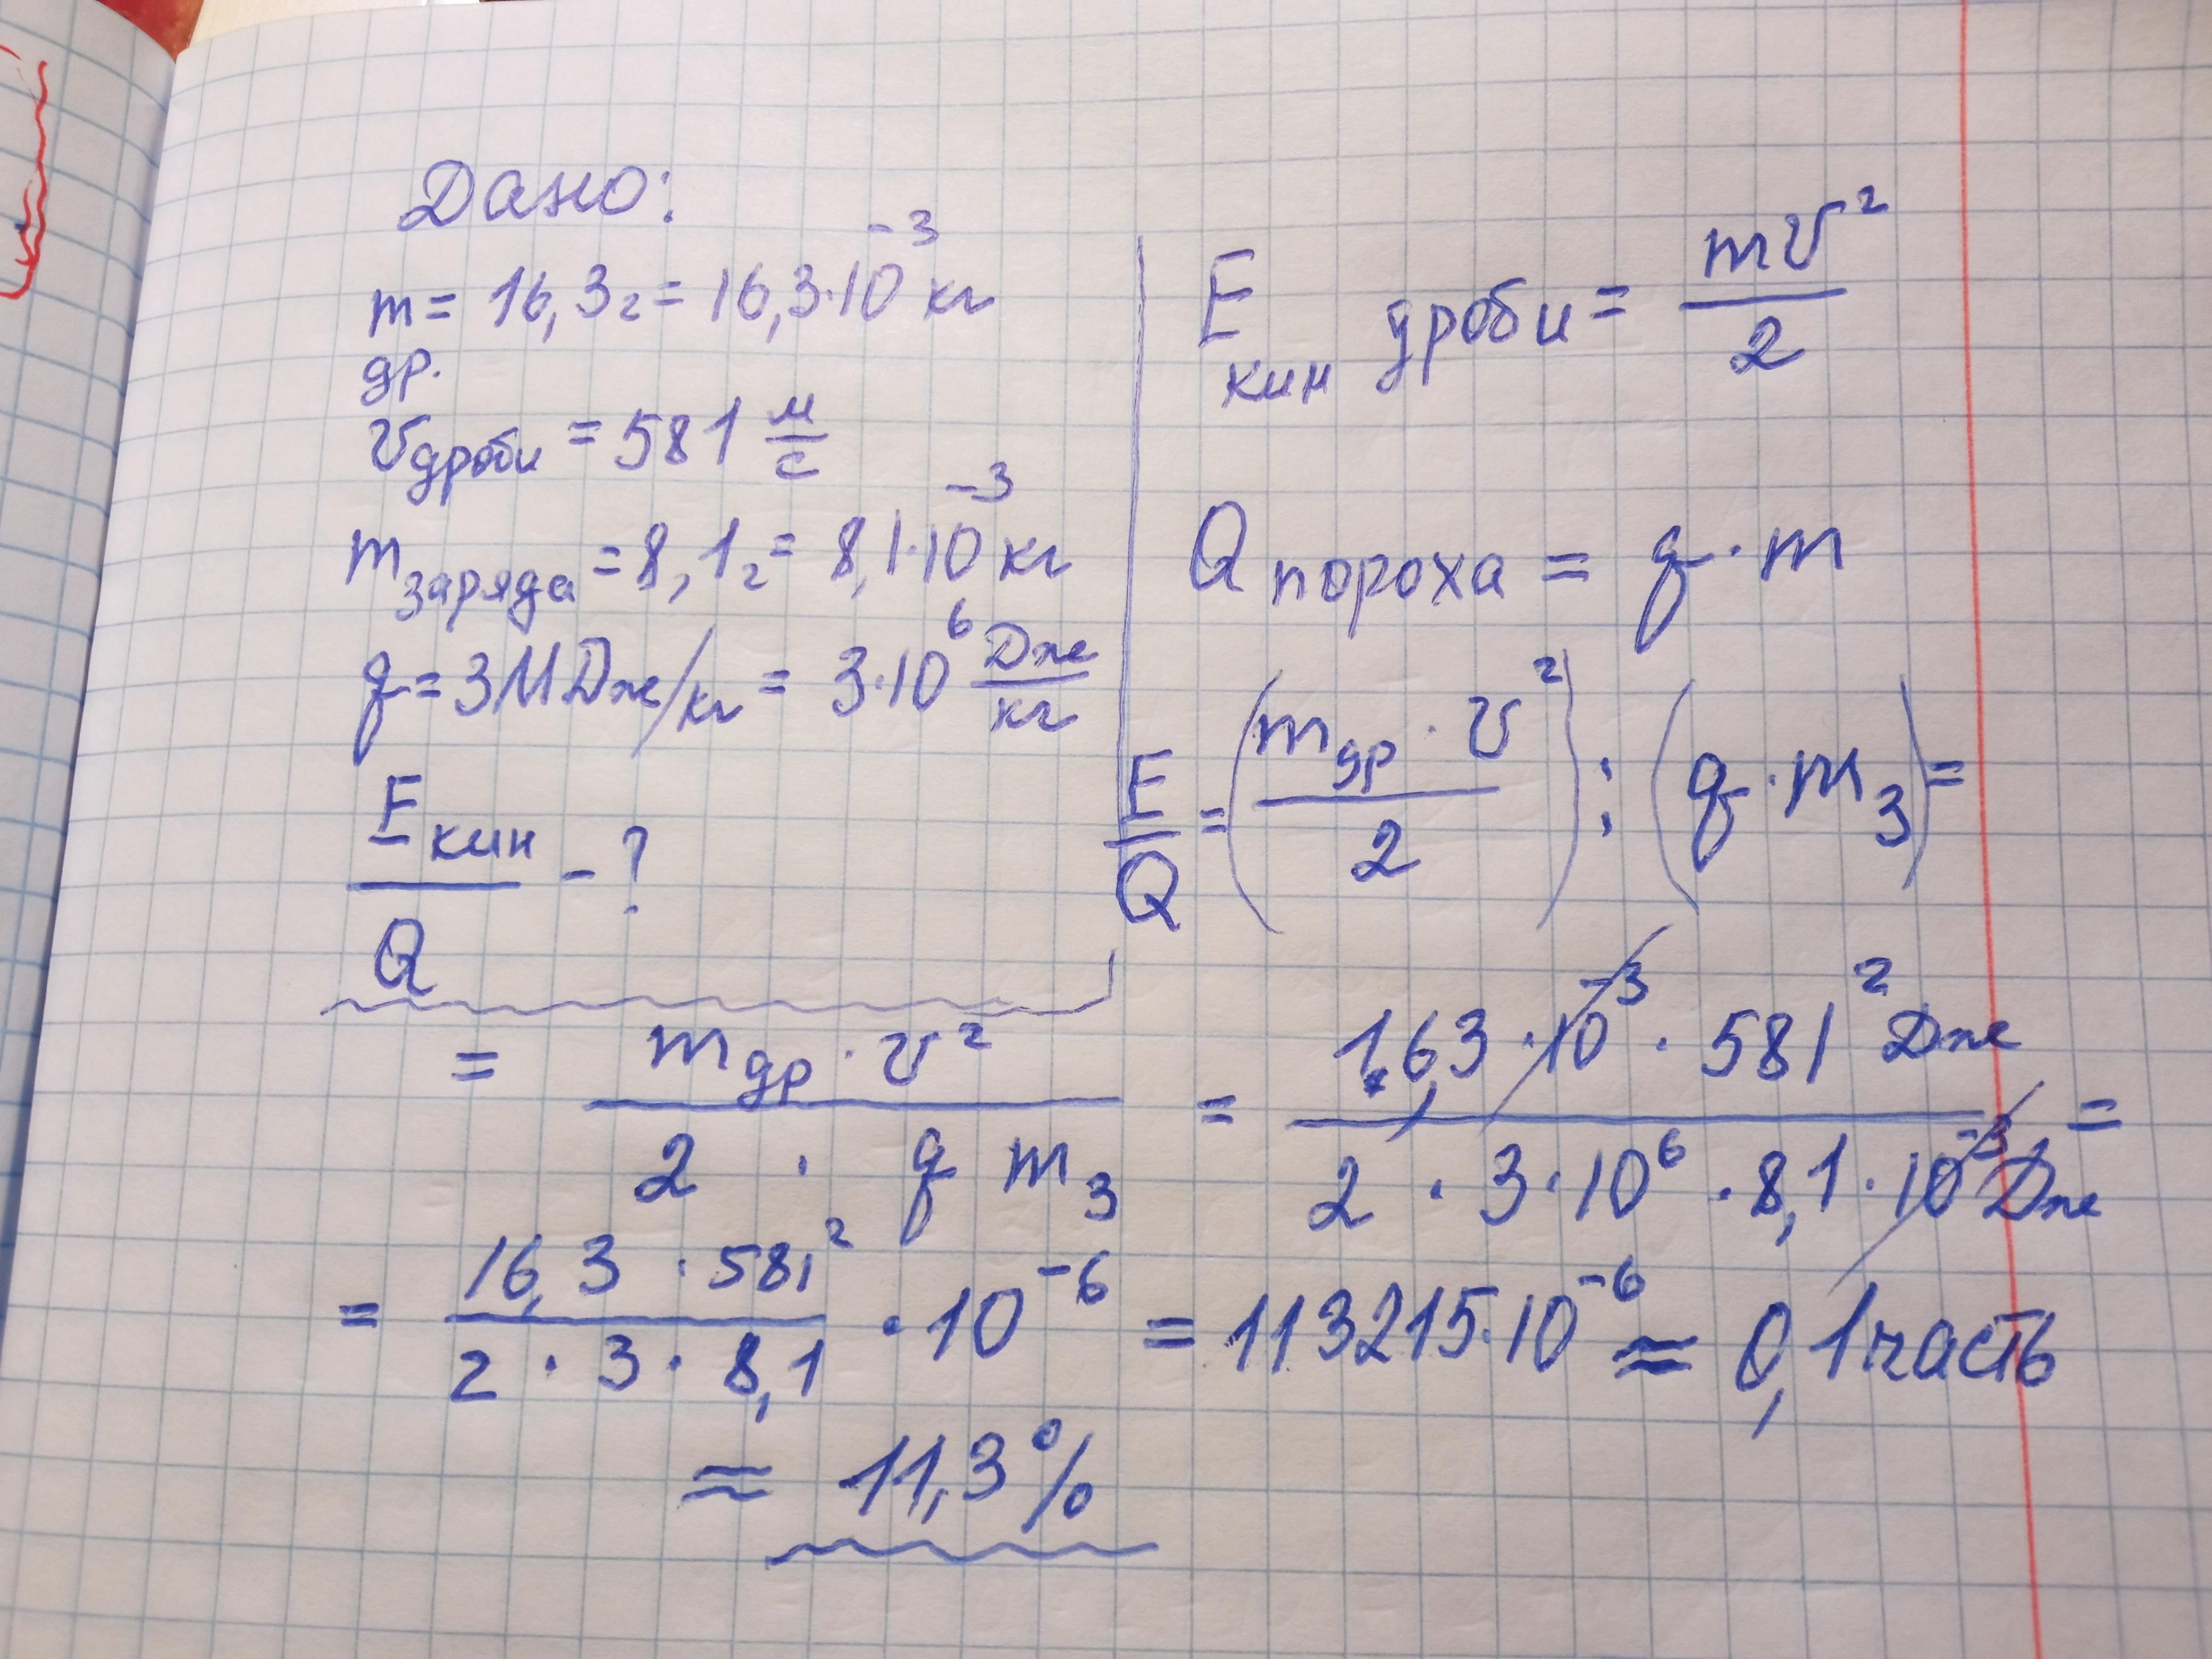 Дано:
m др. = 16,3 г = 16,3·10⁻³ кг
v дроби = 581 м/с
m заряда = 8,1 г = 8,1·10⁻³ кг
q = 3 МДж/кг = 3·10⁶ Дж/кг
E кин / Q - ?
E кин дроби = mv² / 2
Q пороха = q · m
E/Q = (m др · v² / 2) : (q · m з) =
= m др · v² / 2 · q m з = 16,3 · 10⁻³ · 581² Дж / 2 · 3 · 10⁶ · 8,1 · 10⁻³ Дж =
= 16,3 · 581² / 2 · 3 · 8,1 · 10⁻⁶ = 113215·10⁻⁶ ≈ 0,1 часть
≈ 11,3 %